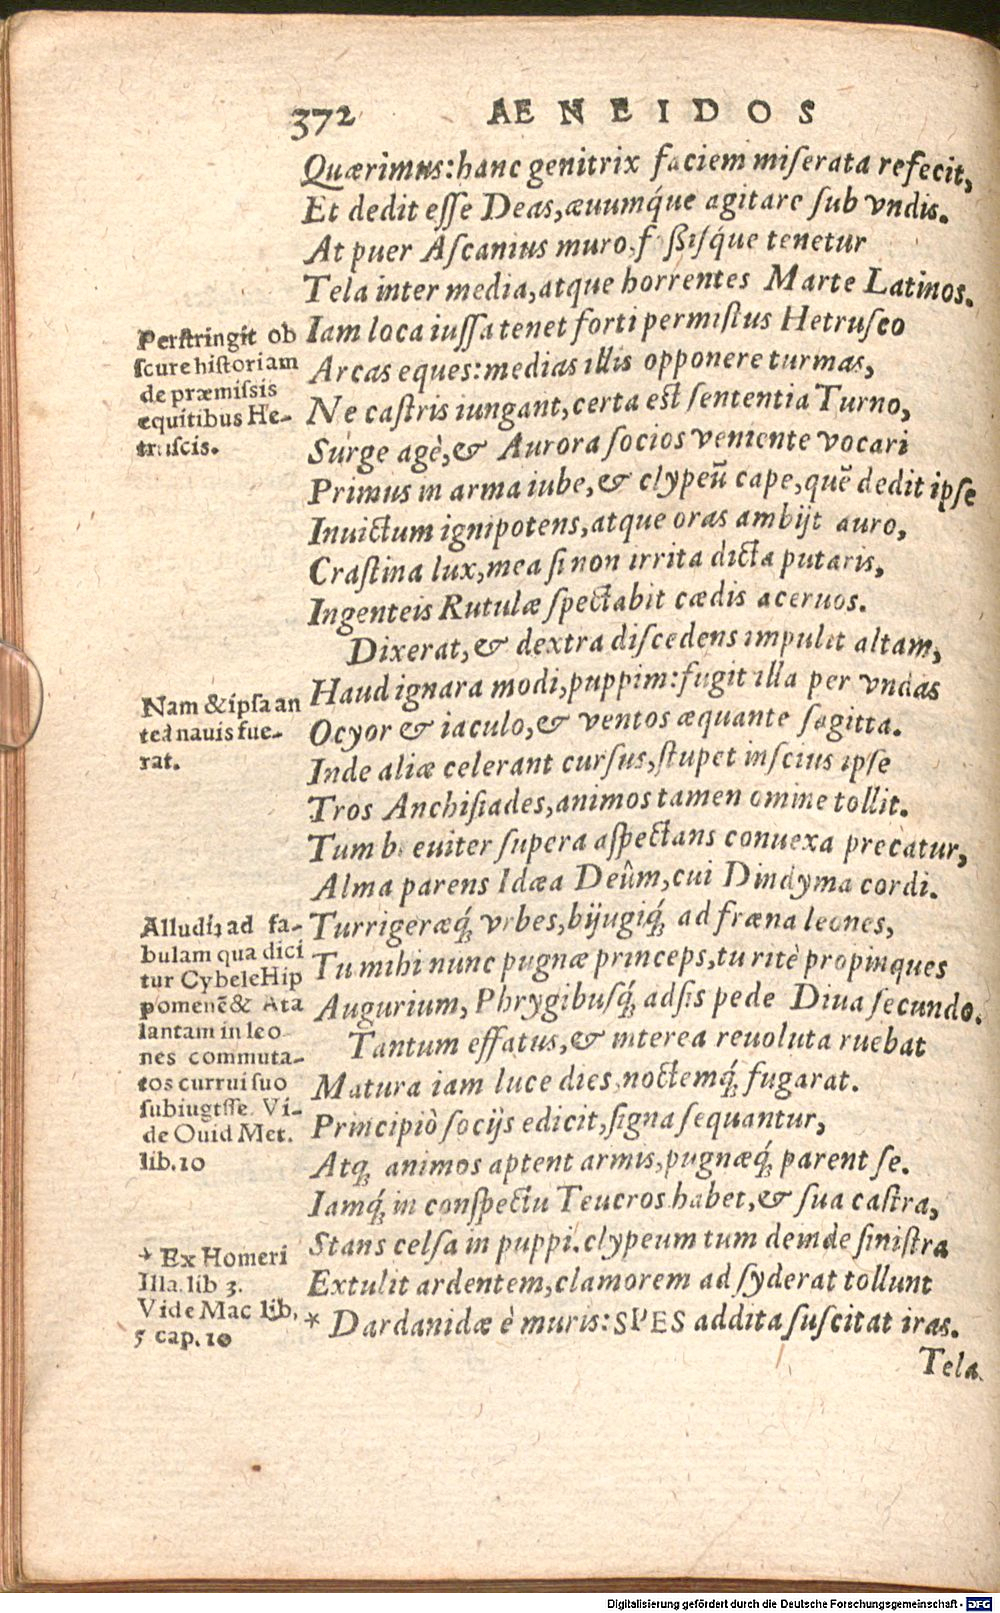 372 AENEIDOS
Quærimus: hanc genitrix faciem miſerata refecit,
Et dedit eſſe Deas, æuumq́ue agitare ſub vndis.
At puer Aſcanius muro, f ßiſq́ue tenetur
Tela inter media, atque horrentes Marte Latinos.
Iam loca iuſſa tenet forti permiſtus Hetruſco
Arcas eques: medias illis opponere turmas,
Ne caſtris iungant, certa eſt ſententia Turno,
Surge agè, & Aurora ſocios veniente vocari
Primus in arma iube, & clypeū cape, quē dedit ipſe
Inuictum ignipotens, atque oras ambijt auro,
Craſtina lux, mea ſi non irrita dicta putaris,
Ingenteis Rutulæ ſpectabit cædis aceruos.
Dixerat, & dextra diſcedens impulit altam,
Haud ignara modi, puppim: fugit illa per vndas
Ocyor & iaculo, & ventos æquante ſagitta.
Inde aliæ celerant curſus, ſtupet inſcius ipſe
Tros Anchiſiades, animos tamen omine tollit.
Tum b euiter ſupera aſpectans conuexa precatur,
Alma parens Idæa Deûm, cui Dindyma cordi.
Turrigeræq́ꝫ vrbes, bijugiq́ꝫ ad fræna leones,
Tu mihi nunc pugnæ princeps, tu ritè propinques
Augurium, Phrygibuſq́ꝫ adſis pede Diua ſecundo.
Tantum effatus, & interea reuoluta ruebat
Matura iam luce dies, noctemq́ꝫ fugarat.
Principiò ſocijs edicit, ſigna ſequantur,
Atqꝫ animos aptent armis, pugnæq́ꝫ parent ſe.
Iamq́ꝫ in conſpectu Teucros habet, & ſua caſtra,
Stans celſa in puppi. clypeum tum deinde ſiniſtra
Extulit ardentem, clamorem ad ſydera tollunt
* Dardanidæ è muris: SPES addita ſuſcitat iras.
Tela
Perſtringit ob
ſcure hiſtoriam
de præmiſsis
equitibus He-
truſcis.
Nam & ipſa an
teà nauis fue-
rat.
Alludit ad fa-
bulam qua dici
tur Cybele Hip
pomenē & Ata
lantam in leo
nes commuta-
tos currui ſuo
ſubiugaſſe. Vi-
de Ouid Met.
lib. 10
* Ex Homeri
Illa. lib 3.
Vide Mac lib,
5 cap. 10
Digitalisierung gefördert durch die Deutsche Forschungsgemeinschaft - DFG